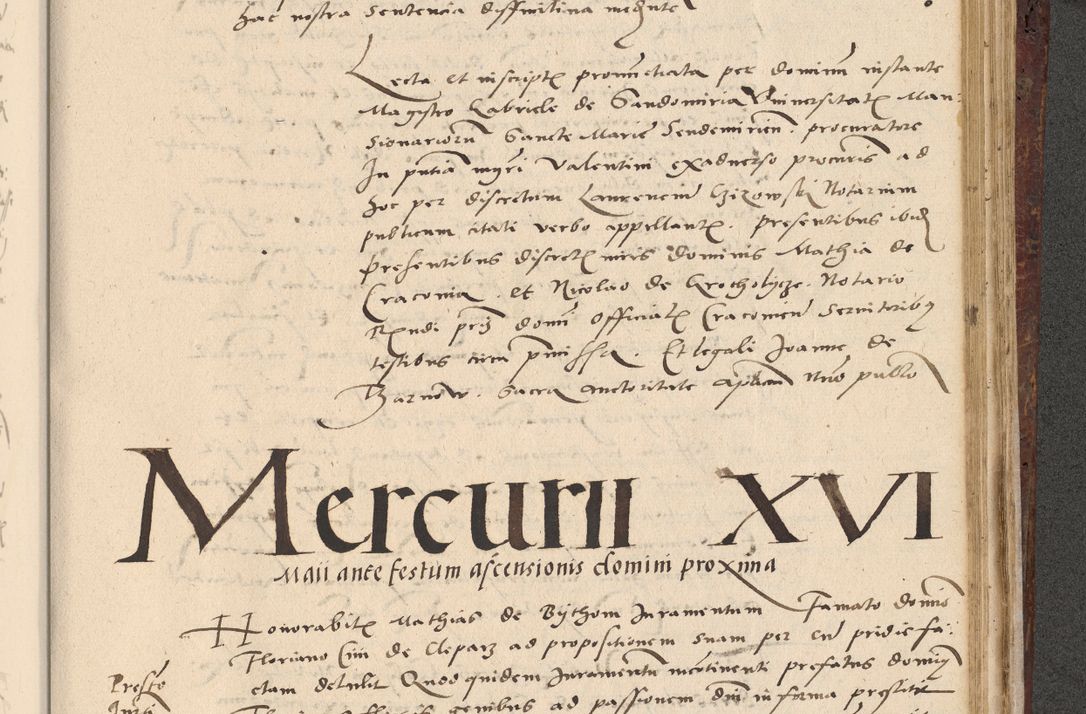 hac nostra sententia diffinitiva mediante
Lecta et in scriptis pronunctiata per dominum instante
Magistro Gabriele de Sandomiria Universitatis Man-
sionariorum Sancte Marie Sendomirien. procuratore
In pntia mgri Valentini ex adverso procuris ad
hoc per discretum Laurencium Notarium
publicum citati verbo appellantis. Presentibus ibidem
presentibus discretis viris dominis Mathia de
Craconia. et Nicolao de Grotholycze. Notario
domini Officialis Cracovien Servitoribus
testibus circa premissa. Et legali Joanne de
Barnow. Sacra auctoritate aplica Nrio publico
Mercurii XVI
Maii ante festum ascensionis domini proxima
Honorabilis Mathias de Bythom Iuramentum Famato domino
Floriano Civi de Cleparz ad propositionem suam per eum pridie fa-
ctam detulit Quod quidem Iuramentum incontinenti prefatus dominus
genibus ad passionem dni in forma prestitit